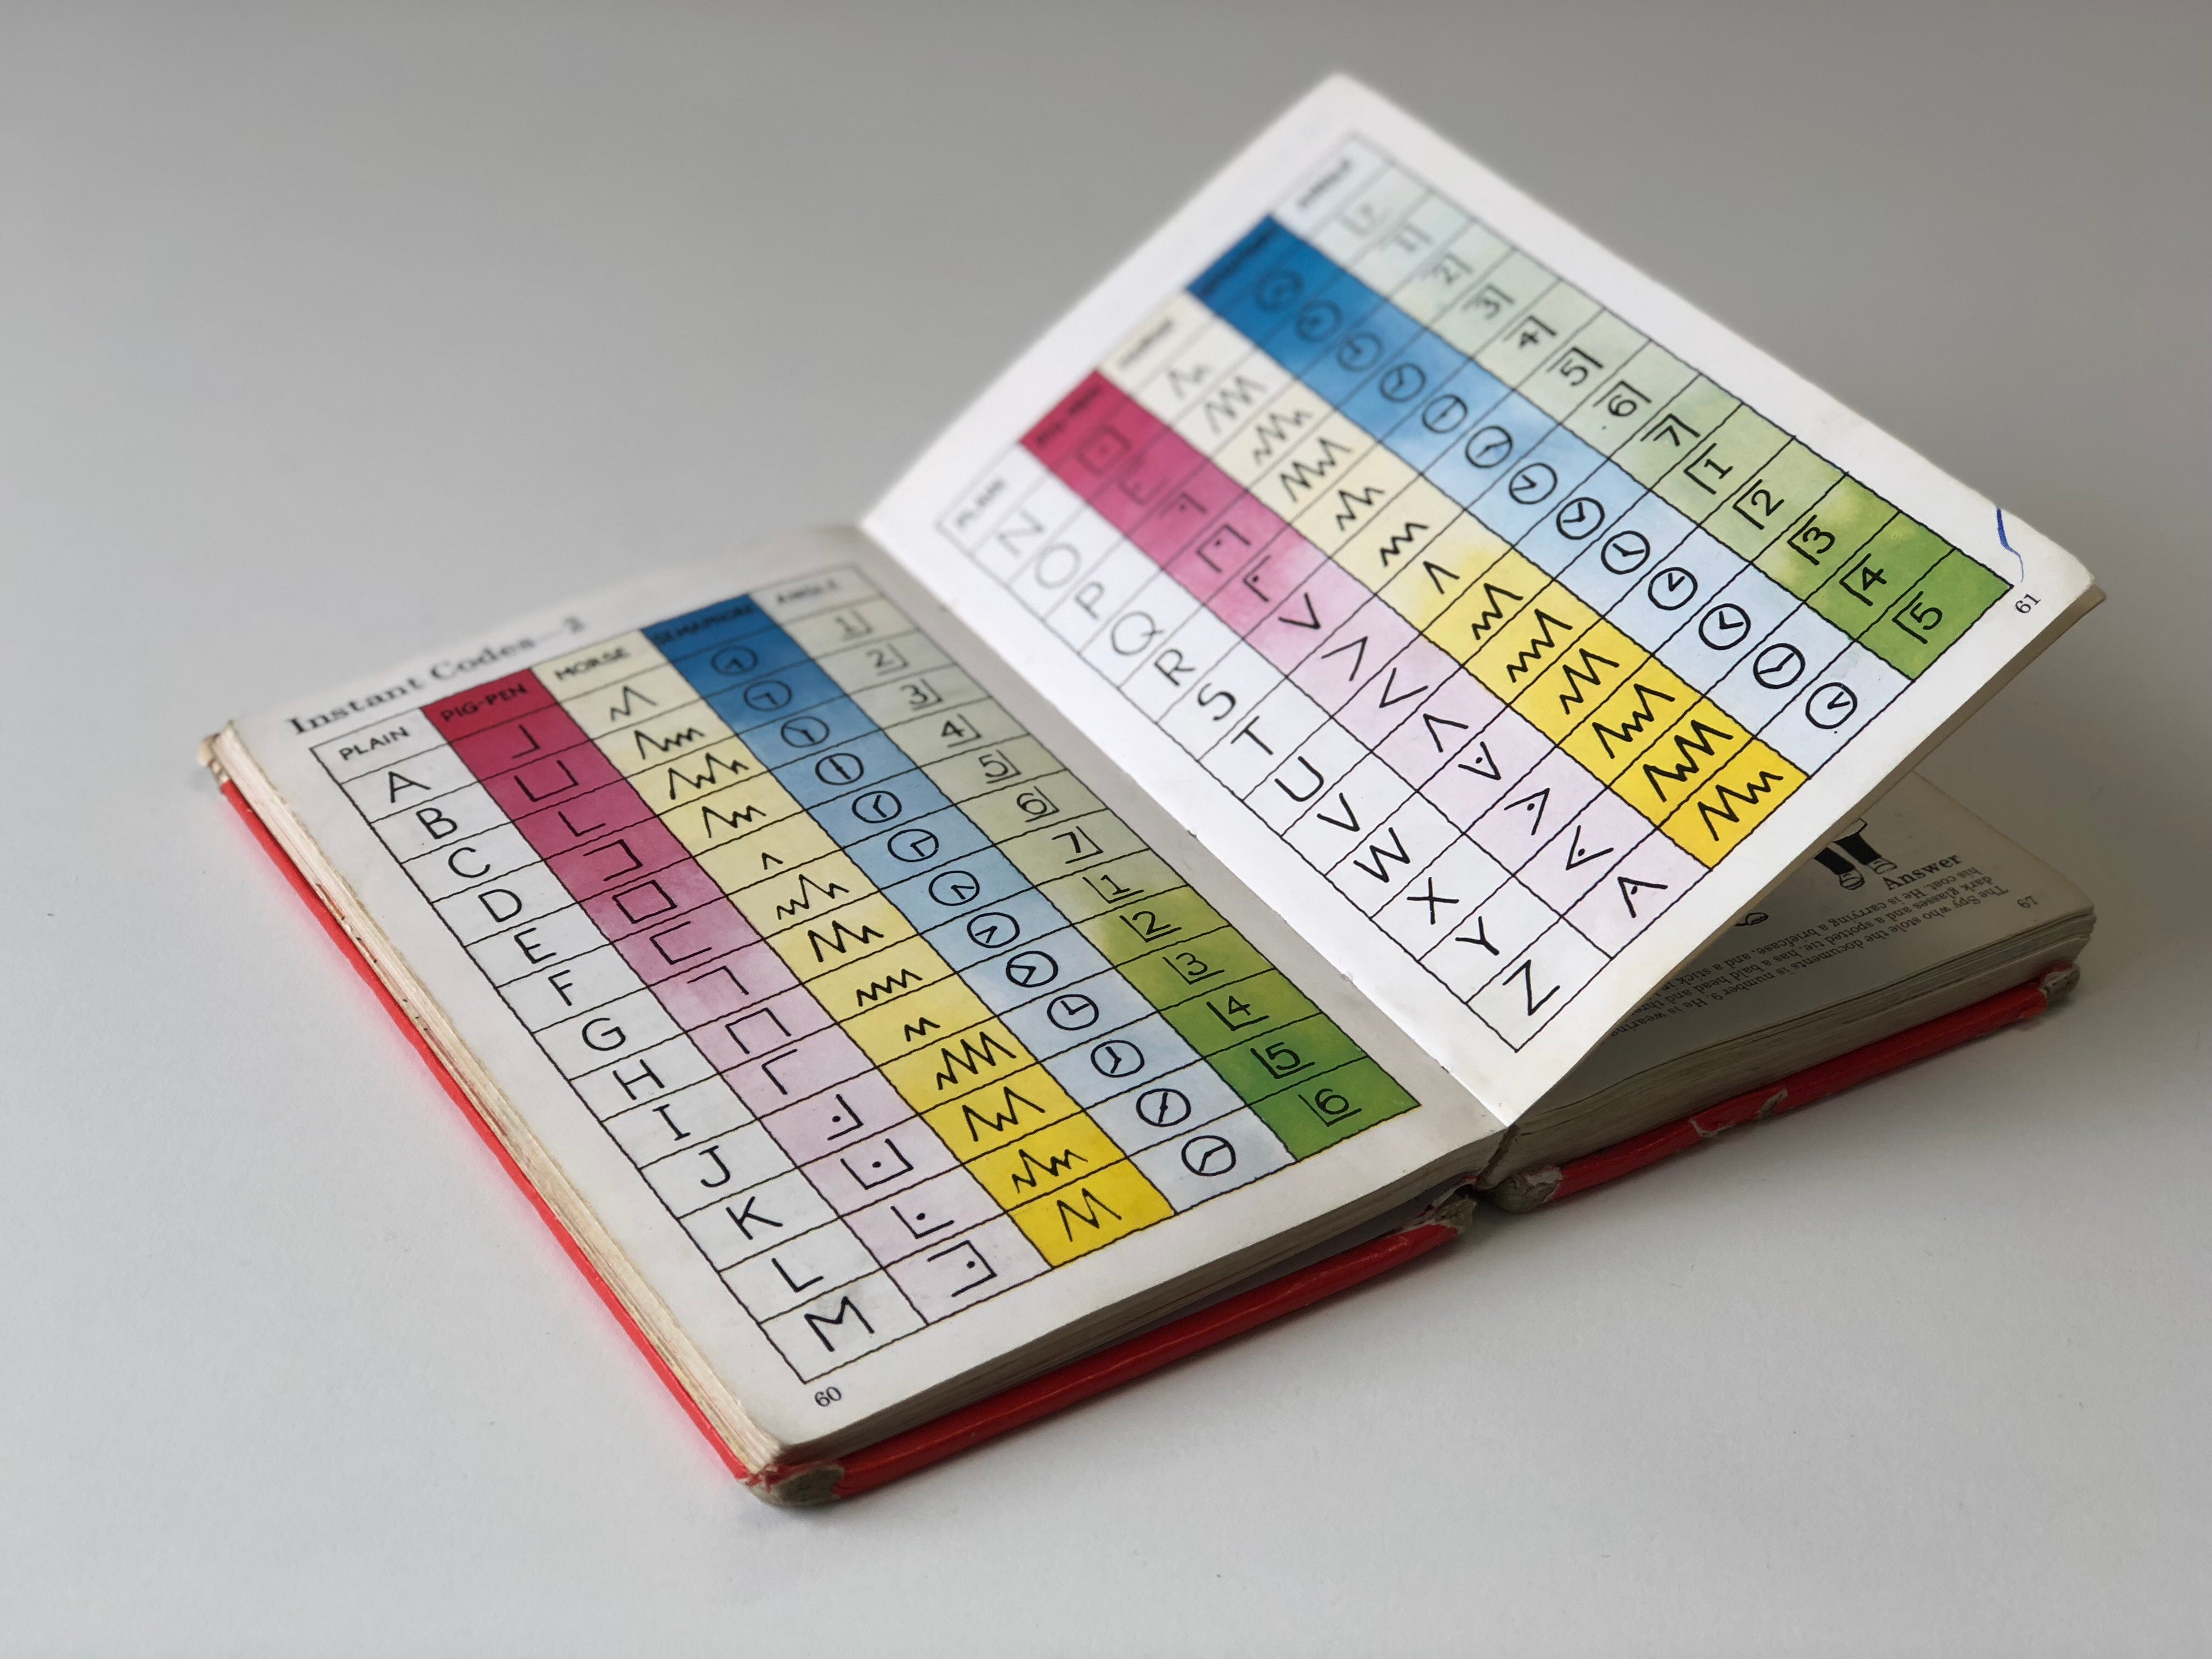 Instant Codes—2
PLAIN PIG-PEN MORSE SEMAPHORE ANGLE
A 1
B 2
C 3
D 4
E 5
F 6
G 7
H 1
I 2
J 3
K 4
L 5
M 6
60
PLAIN PIG-PEN MORSE
N
O 1
P 2
Q 3
R 4
S 5
T 6
U 7
V 1
W 2
X 3
Y 4
Z 5
61
Answer
The Spy who stole the documents is number 9. He is wearing
dark glasses and a spotted tie, has a bald head and three
his coat. He is carrying a briefcase, and a stick in